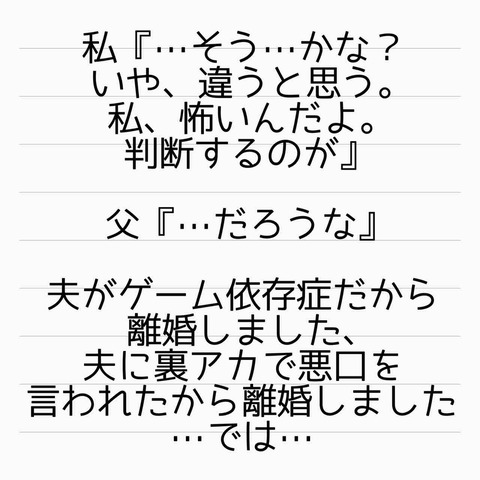 私『…そう…かな？
いや、違うと思う。
私、怖いんだよ。
判断するのが』
父『…だろうな』
夫がゲーム依存症だから
離婚しました、
夫に裏アカで悪口を
言われたから離婚しました
…では…